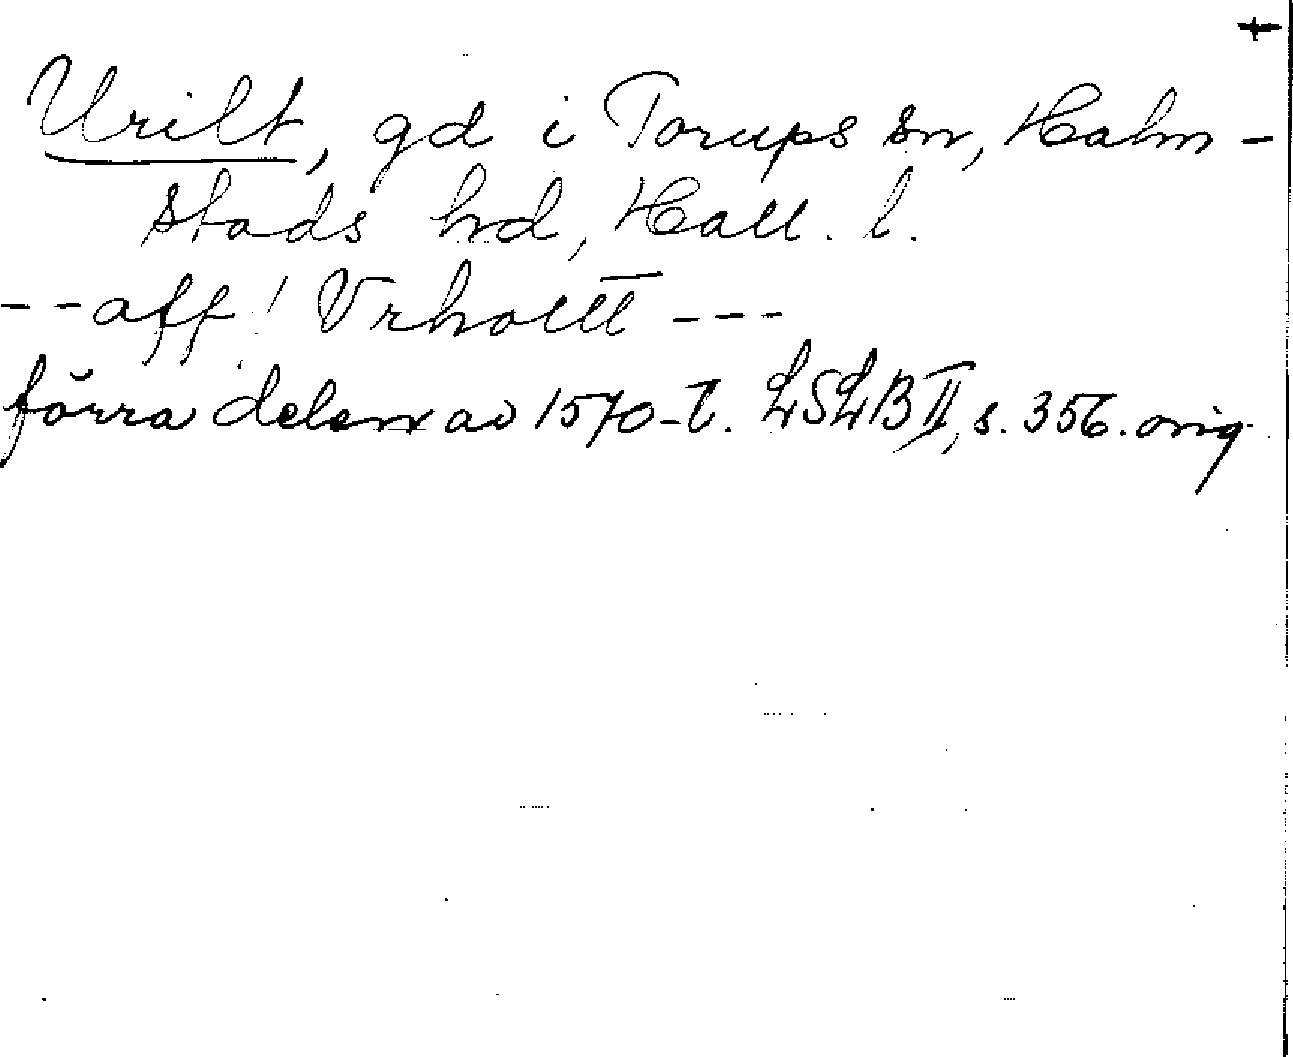 Urilt, gd i Torups sn, Halm-
stads hd, Hall. l.
--aff! Vrholtt ---
förra delen av 1570-t. LSLB II, s. 356. orig.